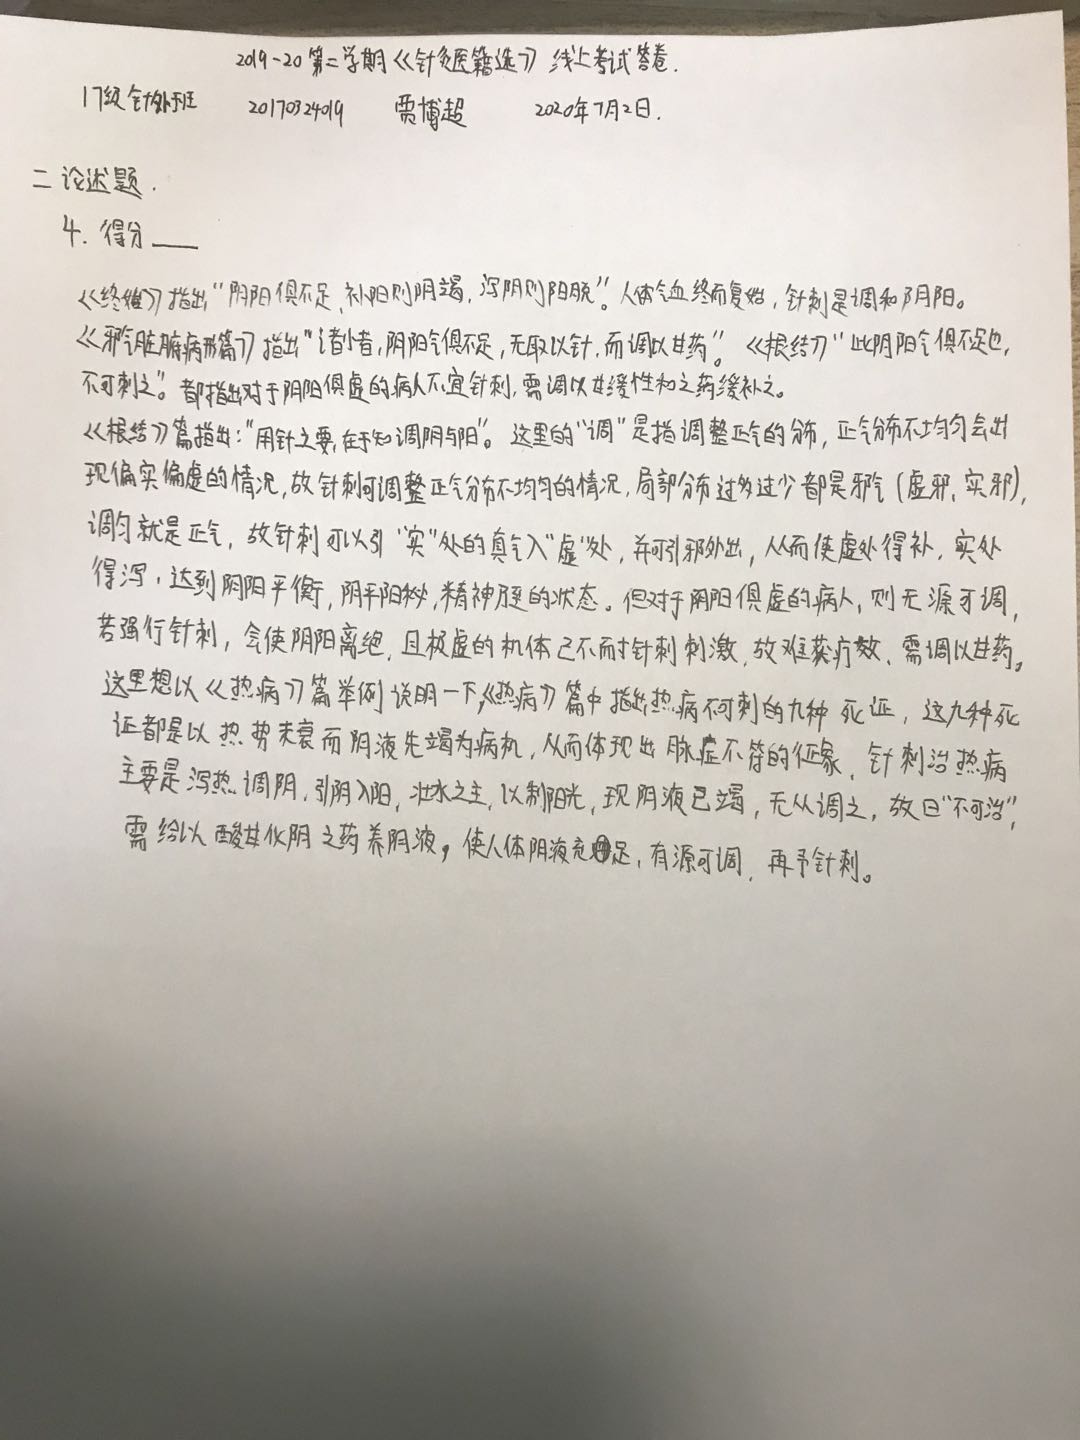 2019-20第二学期《针灸医籍选》线上考试答卷.
17级针外班 20170324019 贾博超 2020年7月2日.
二 论述题.
4. 得分
《终始》指出“阴阳俱不足,补阳则阴竭,泻阴则阳脱”。人体气血终而复始,针刺是调和阴阳。
《邪气脏腑病形篇》指出“诸小者,阴阳气俱不足,无取以针,而调以甘药”。《根结》“此阴阳气俱不足也,
不可刺之”。都指出对于阴阳俱虚的病人不宜针刺,需调以甘缓性和之药缓补之。
《根结》篇指出:“用针之要,在于知调阴与阳”。这里的“调”是指调整正气的分布,正气分布不均匀会出
现偏实偏虚的情况,故针刺可调整正气分布不均匀的情况,局部分布过多过少都是邪气(虚邪,实邪),
调匀就是正气,故针刺可以引“实”处的真气入“虚”处,并可引邪外出,从而使虚处得补,实处
得泻,达到阴阳平衡,阴平阳秘,精神乃至的状态。但对于阴阳俱虚的病人,则无源可调,
若强行针刺,会使阴阳离绝,且极虚的机体已不耐针刺刺激,故难获疗效,需调以甘药。
这里想以《热病》篇举例说明一下,《热病》篇中指出热病不可刺的九种死证,这九种死
证都是以热势未衰而阴液先竭为病机,从而体现出脉症不符的征象,针刺治热病
主要是泻热调阴,引阴入阳,壮水之主,以制阳光,现阴液已竭,无从调之,故曰“不可治”,
需给以酸甘化阴之药养阴液,使人体阴液充足,有源可调,再予针刺。